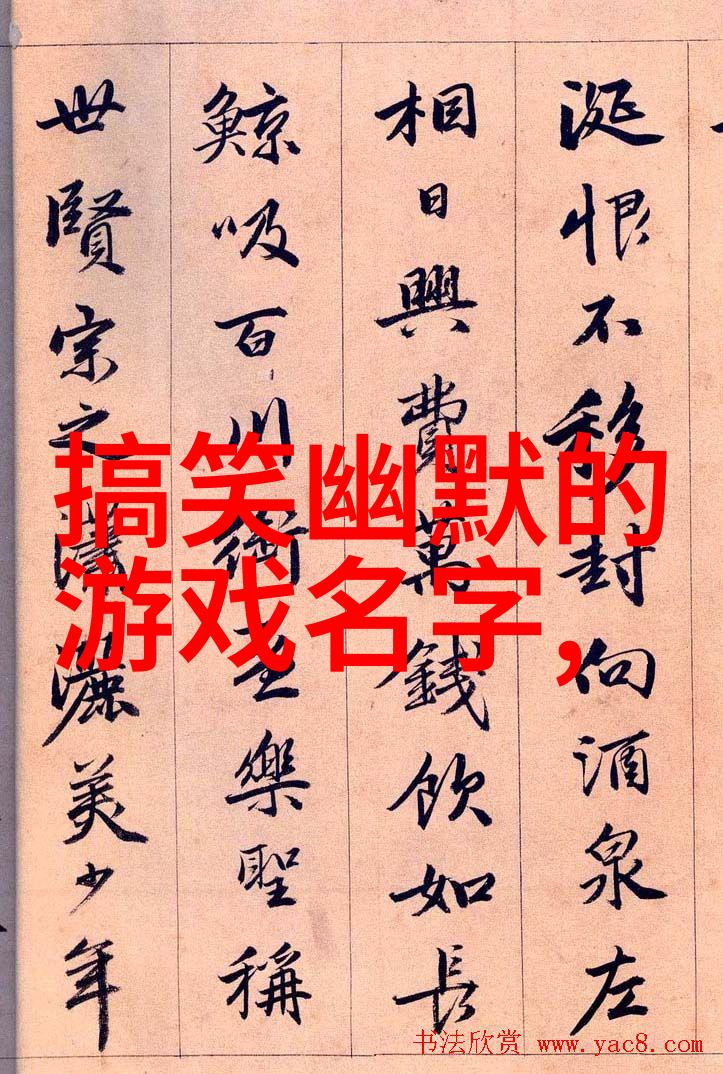 涎恨不移封向酒泉左
相日興費萬錢飲如長
鯨吸百川銜盃樂聖稱
世賢宗之瀟灑美少年
搞笑幽默的
游戏名字，
书法欣赏 www.yac8.com